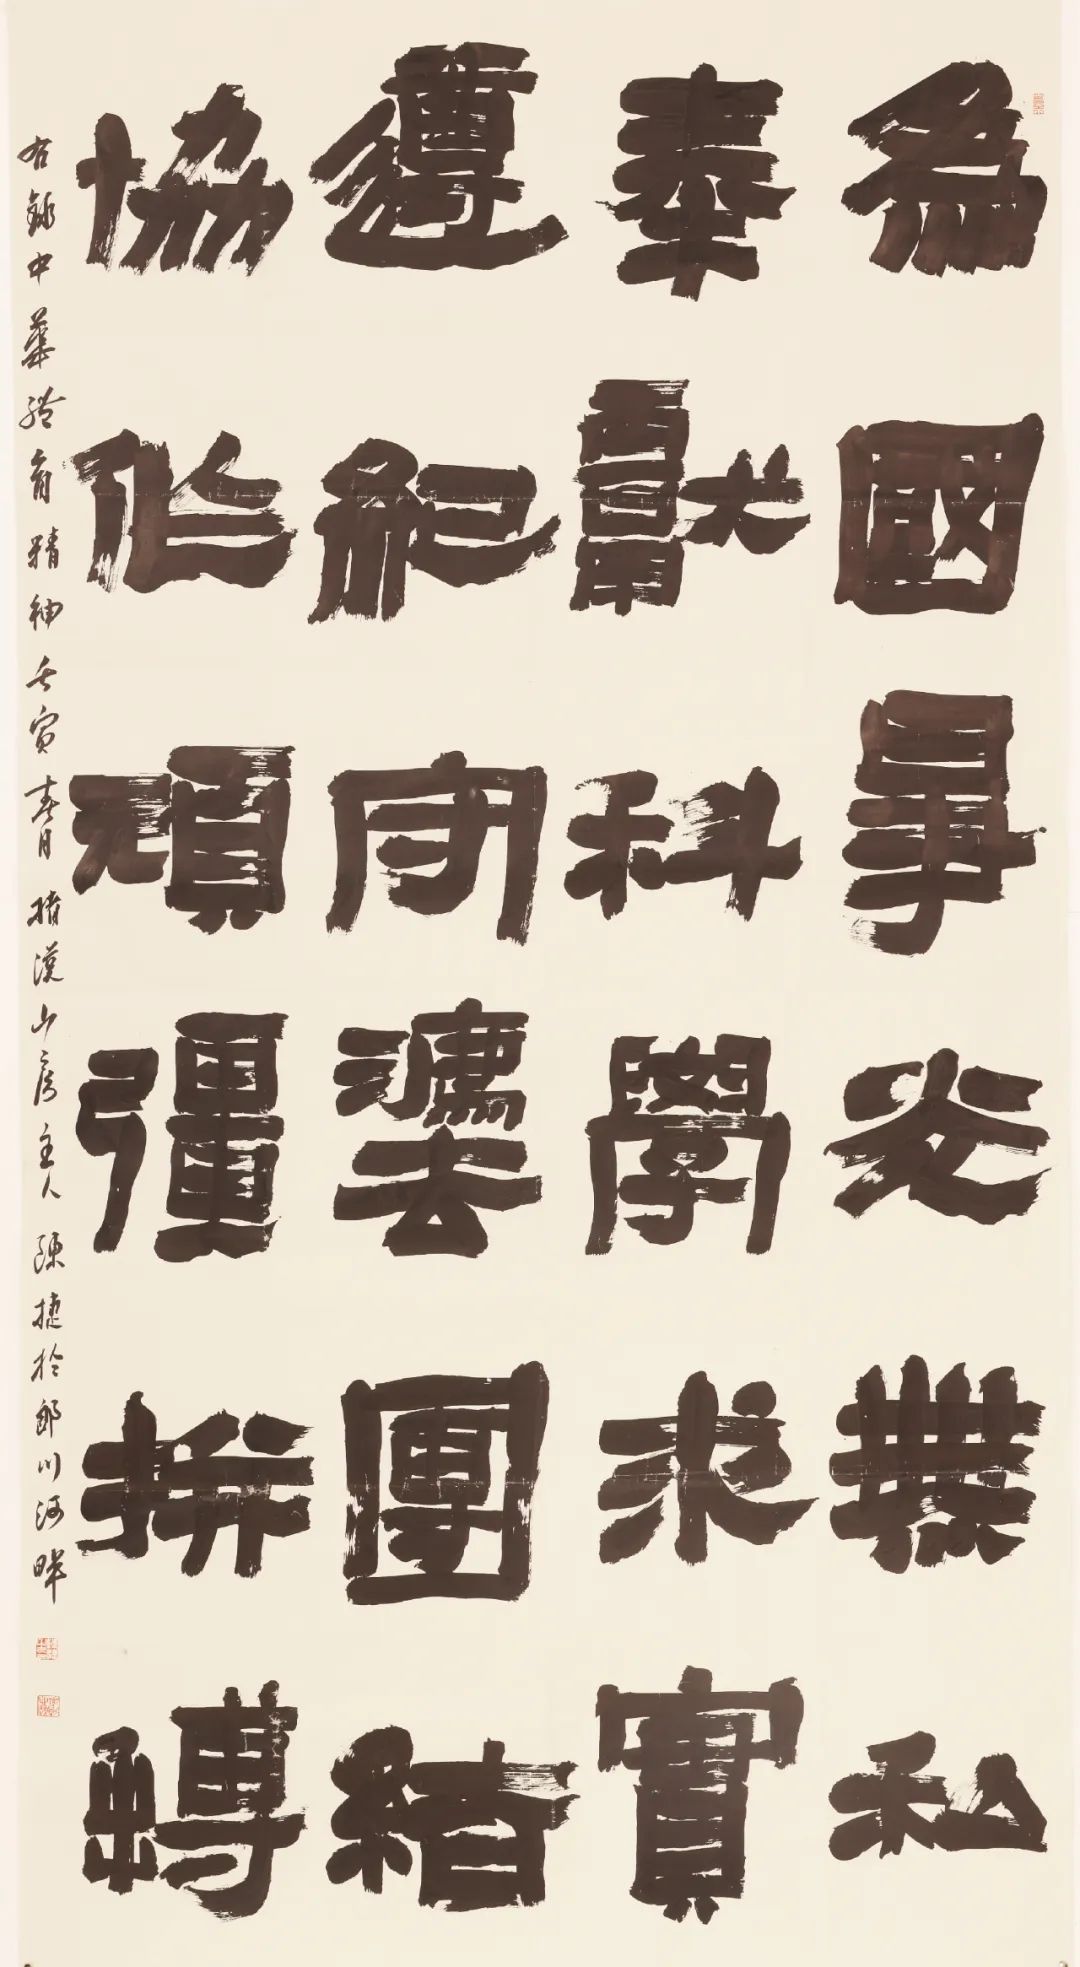 為國爭光無私
奉獻科學求實
遵紀守灋團結
協作頑彊拼搏
右錄中華體育精神壬寅春月漢山房主人陳捷於郎川河畔